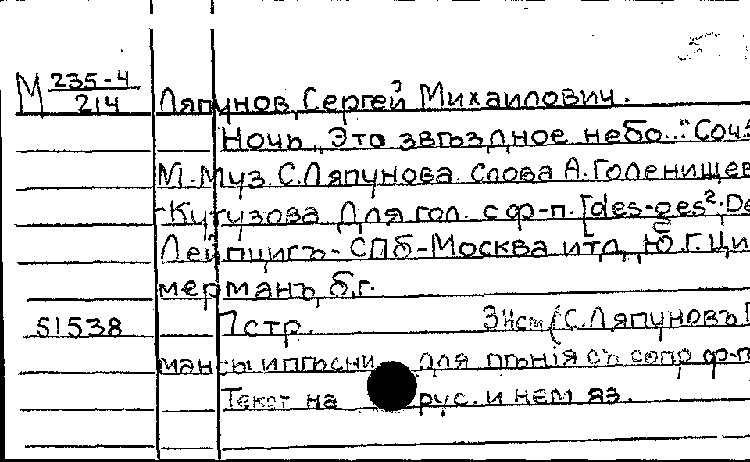 М 235-4/214 Ляпунов, Сергей Михаилович.
Ночь „Это звѣздное небо..." Соч.
М. Муз. С. Ляпунова. Слова А. Голенищев
-Кутузова. Для гол. с ф-п. [des-ges²; De
Лейпцигъ-СПб-Москва итд, Ю. Г. Ци
мерманъ, б.г.
51538 7 стр. (С. Ляпуновъ
мансы и пѣсни для пѣнія съ сопр ф-п
Текст на рус. и нем яз.